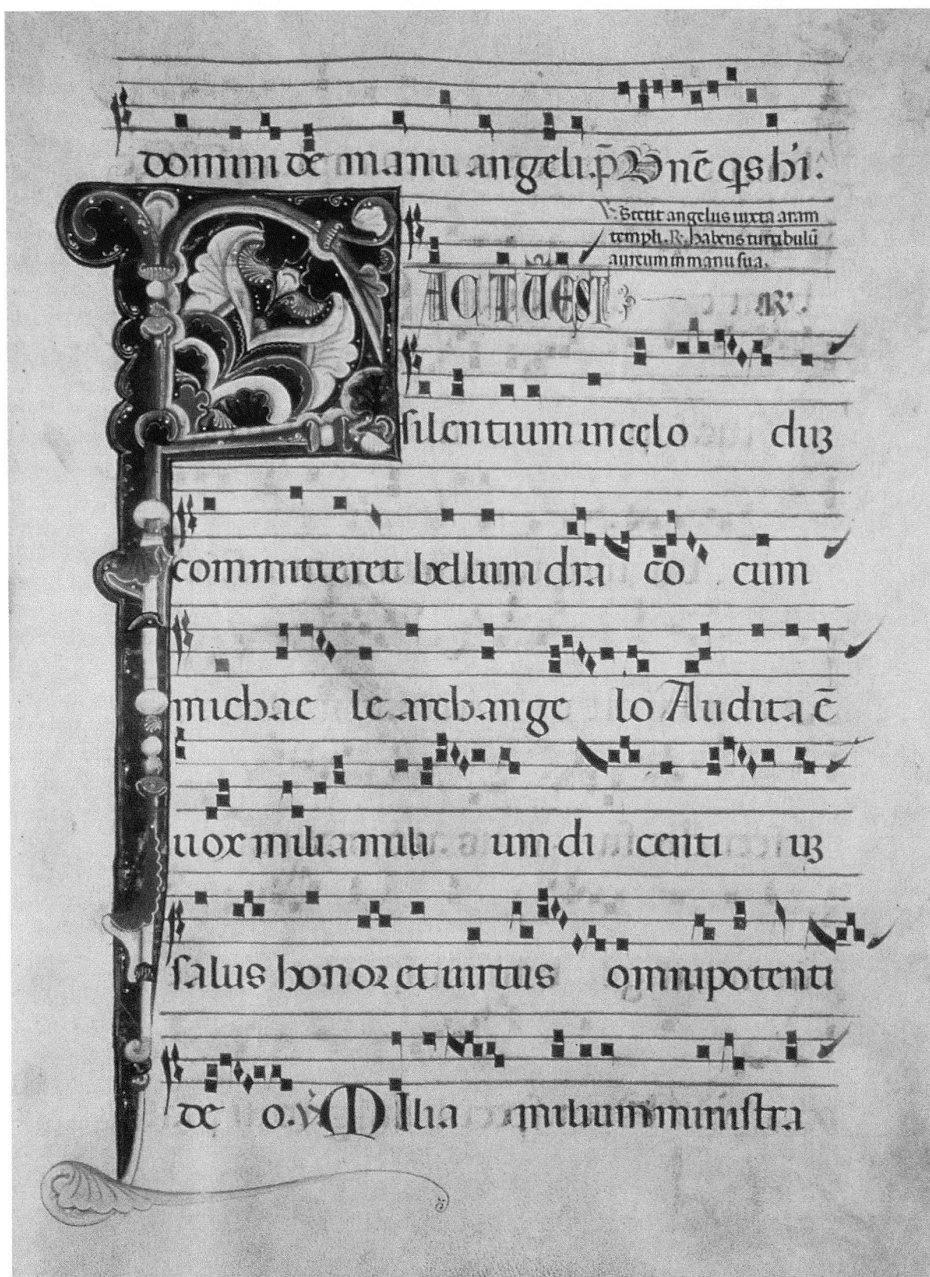 domini de manu angeli. p̄ Bn̄c q̄s hi.
℣. Stetit angelus iuxta aram
templi. ℟. habens turribulū
aureum in manu sua.
FACTU EST ℟.
silentium in celo duꝫ
committeret bellum dra co cum
michae le archange lo Audita ē
uox milia mili um di centi uꝫ
salus honor et uirtus omnipotenti
de o. ℣. Milia milium ministra